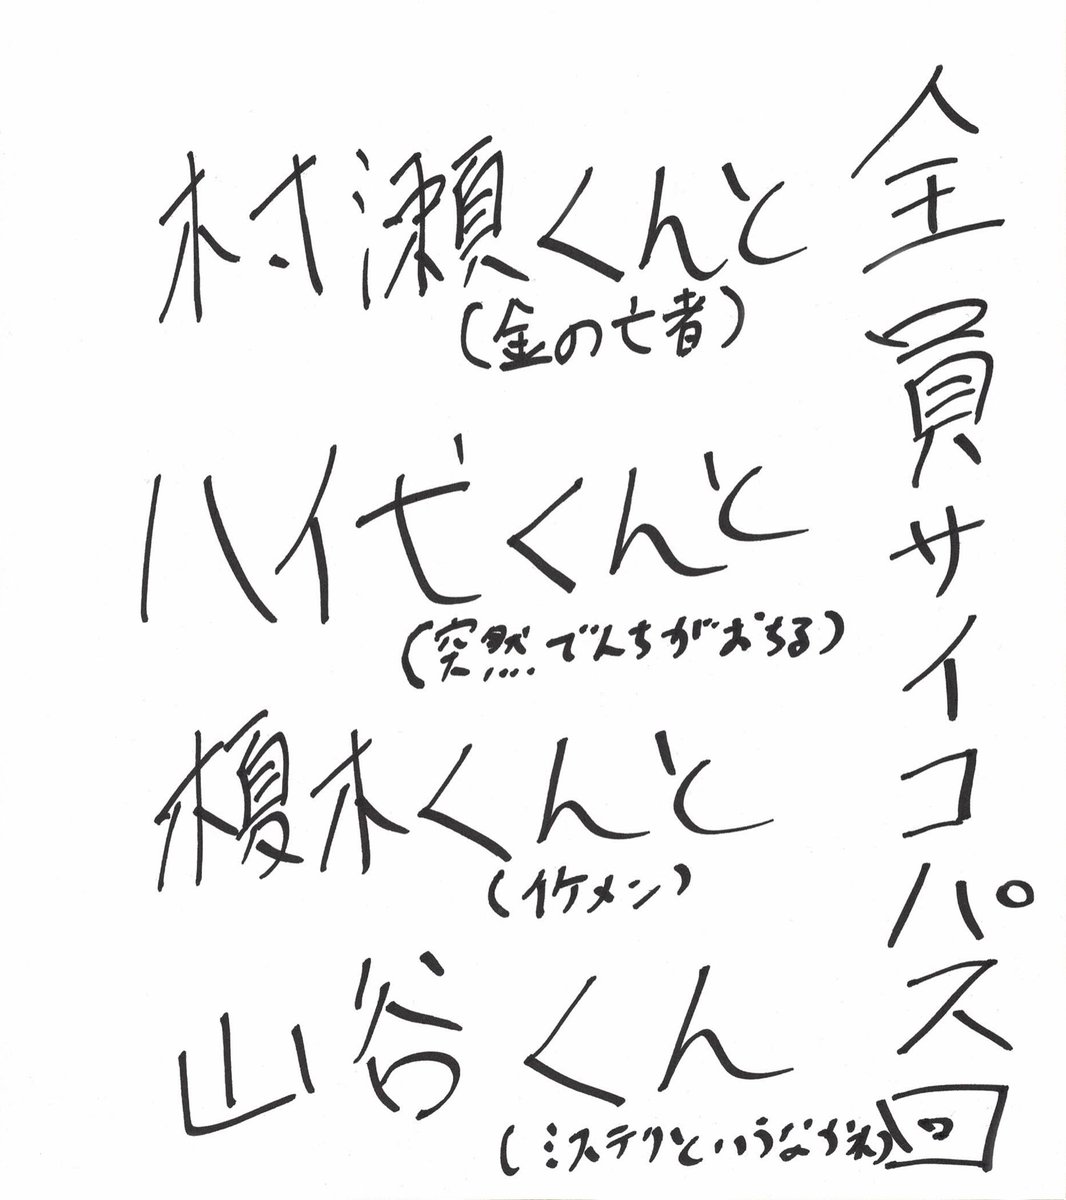 全員サイコパス回
村瀬くんと
(金の亡者)
八代くんと
(突然でんちがおちる)
榎木くんと
(イケメン)
山谷くん
(ミステリというなかれ)